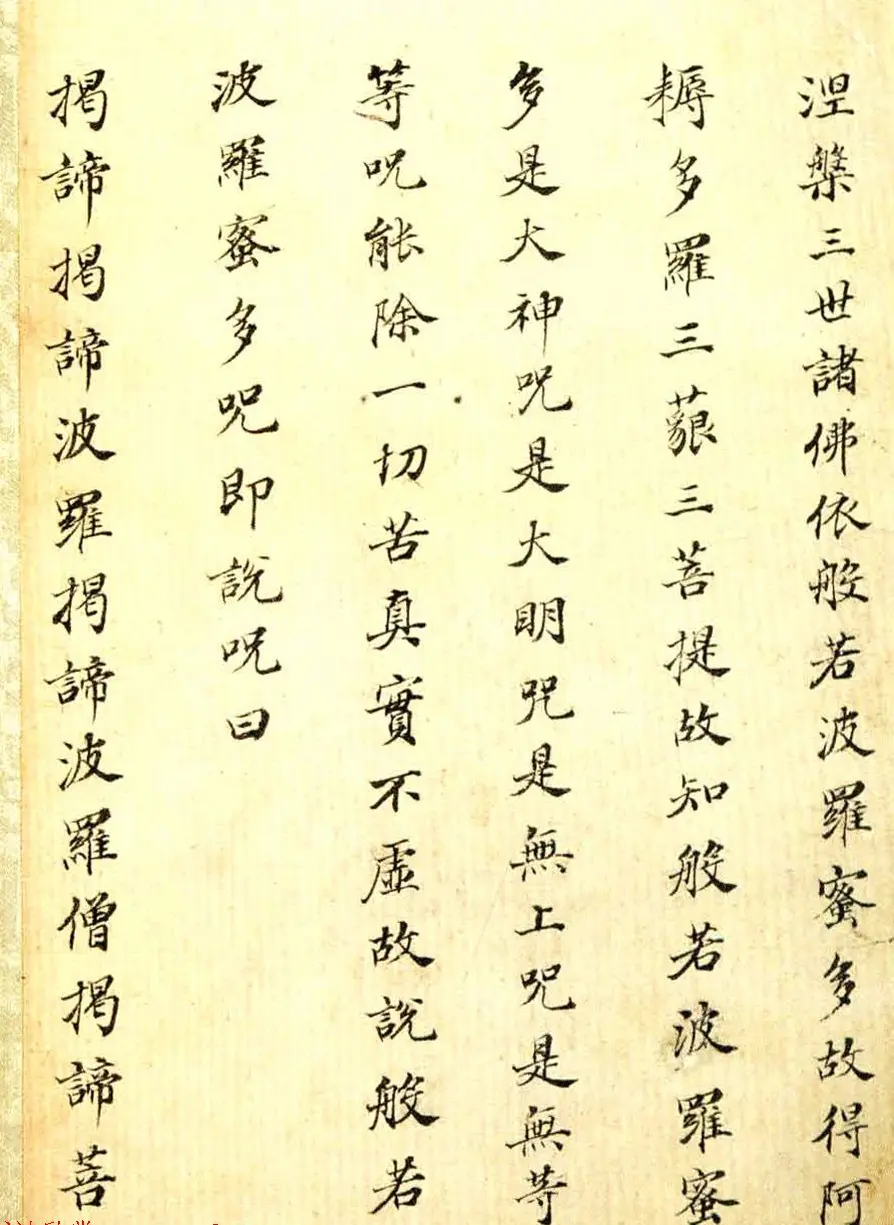 涅槃三世諸佛依般若波羅蜜多故得阿
耨多羅三藐三菩提故知般若波羅蜜
多是大神咒是大明咒是無上咒是無等
等咒能除一切苦真實不虛故說般若
波羅蜜多咒即說咒曰
揭諦揭諦波羅揭諦波羅僧揭諦菩